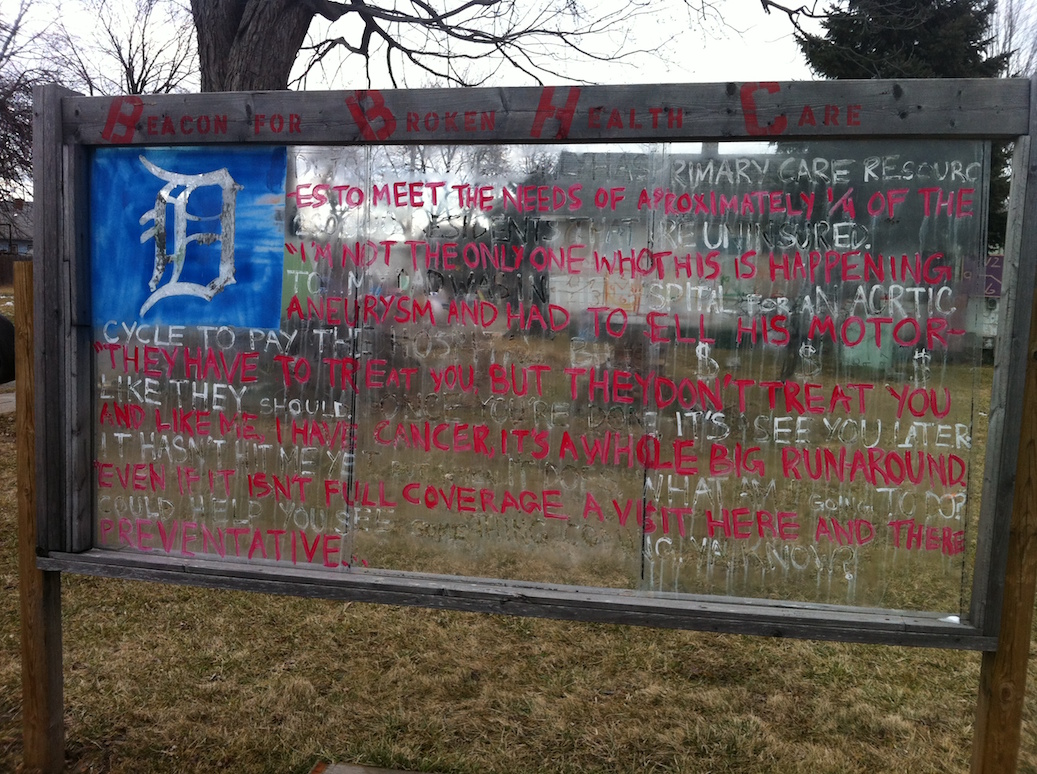 Beacon for Broken Health Care
D
RIMARY CARE RESOURC
-ES TO MEET THE NEEDS OF APPROXIMATELY 1/4 OF THE
UNINSURED.
"I'M NOT THE ONLY ONE WHO THIS IS HAPPENING
TO. MY DAD WAS IN SPITAL FOR AN AORTIC
ANEURYSM AND HAD TO ELL HIS MOTOR-
CYCLE TO PAY THE HOSPITAL BILL $ $ $
"THEY HAVE TO TREAT YOU, BUT THEY DON'T TREAT YOU
LIKE THEY SHOULD. ONCE YOU'RE DONE IT'S SEE YOU LATER
AND LIKE ME, I HAVE CANCER, IT'S A WHOLE BIG RUN-AROUND.
IT HASN'T HIT ME YET WHAT I'M GOING TO DO?
"EVEN IF IT ISN'T FULL COVERAGE A VISIT HERE AND THERE
COULD HELP YOU SEE YA KNOW?
PREVENTATIVE..